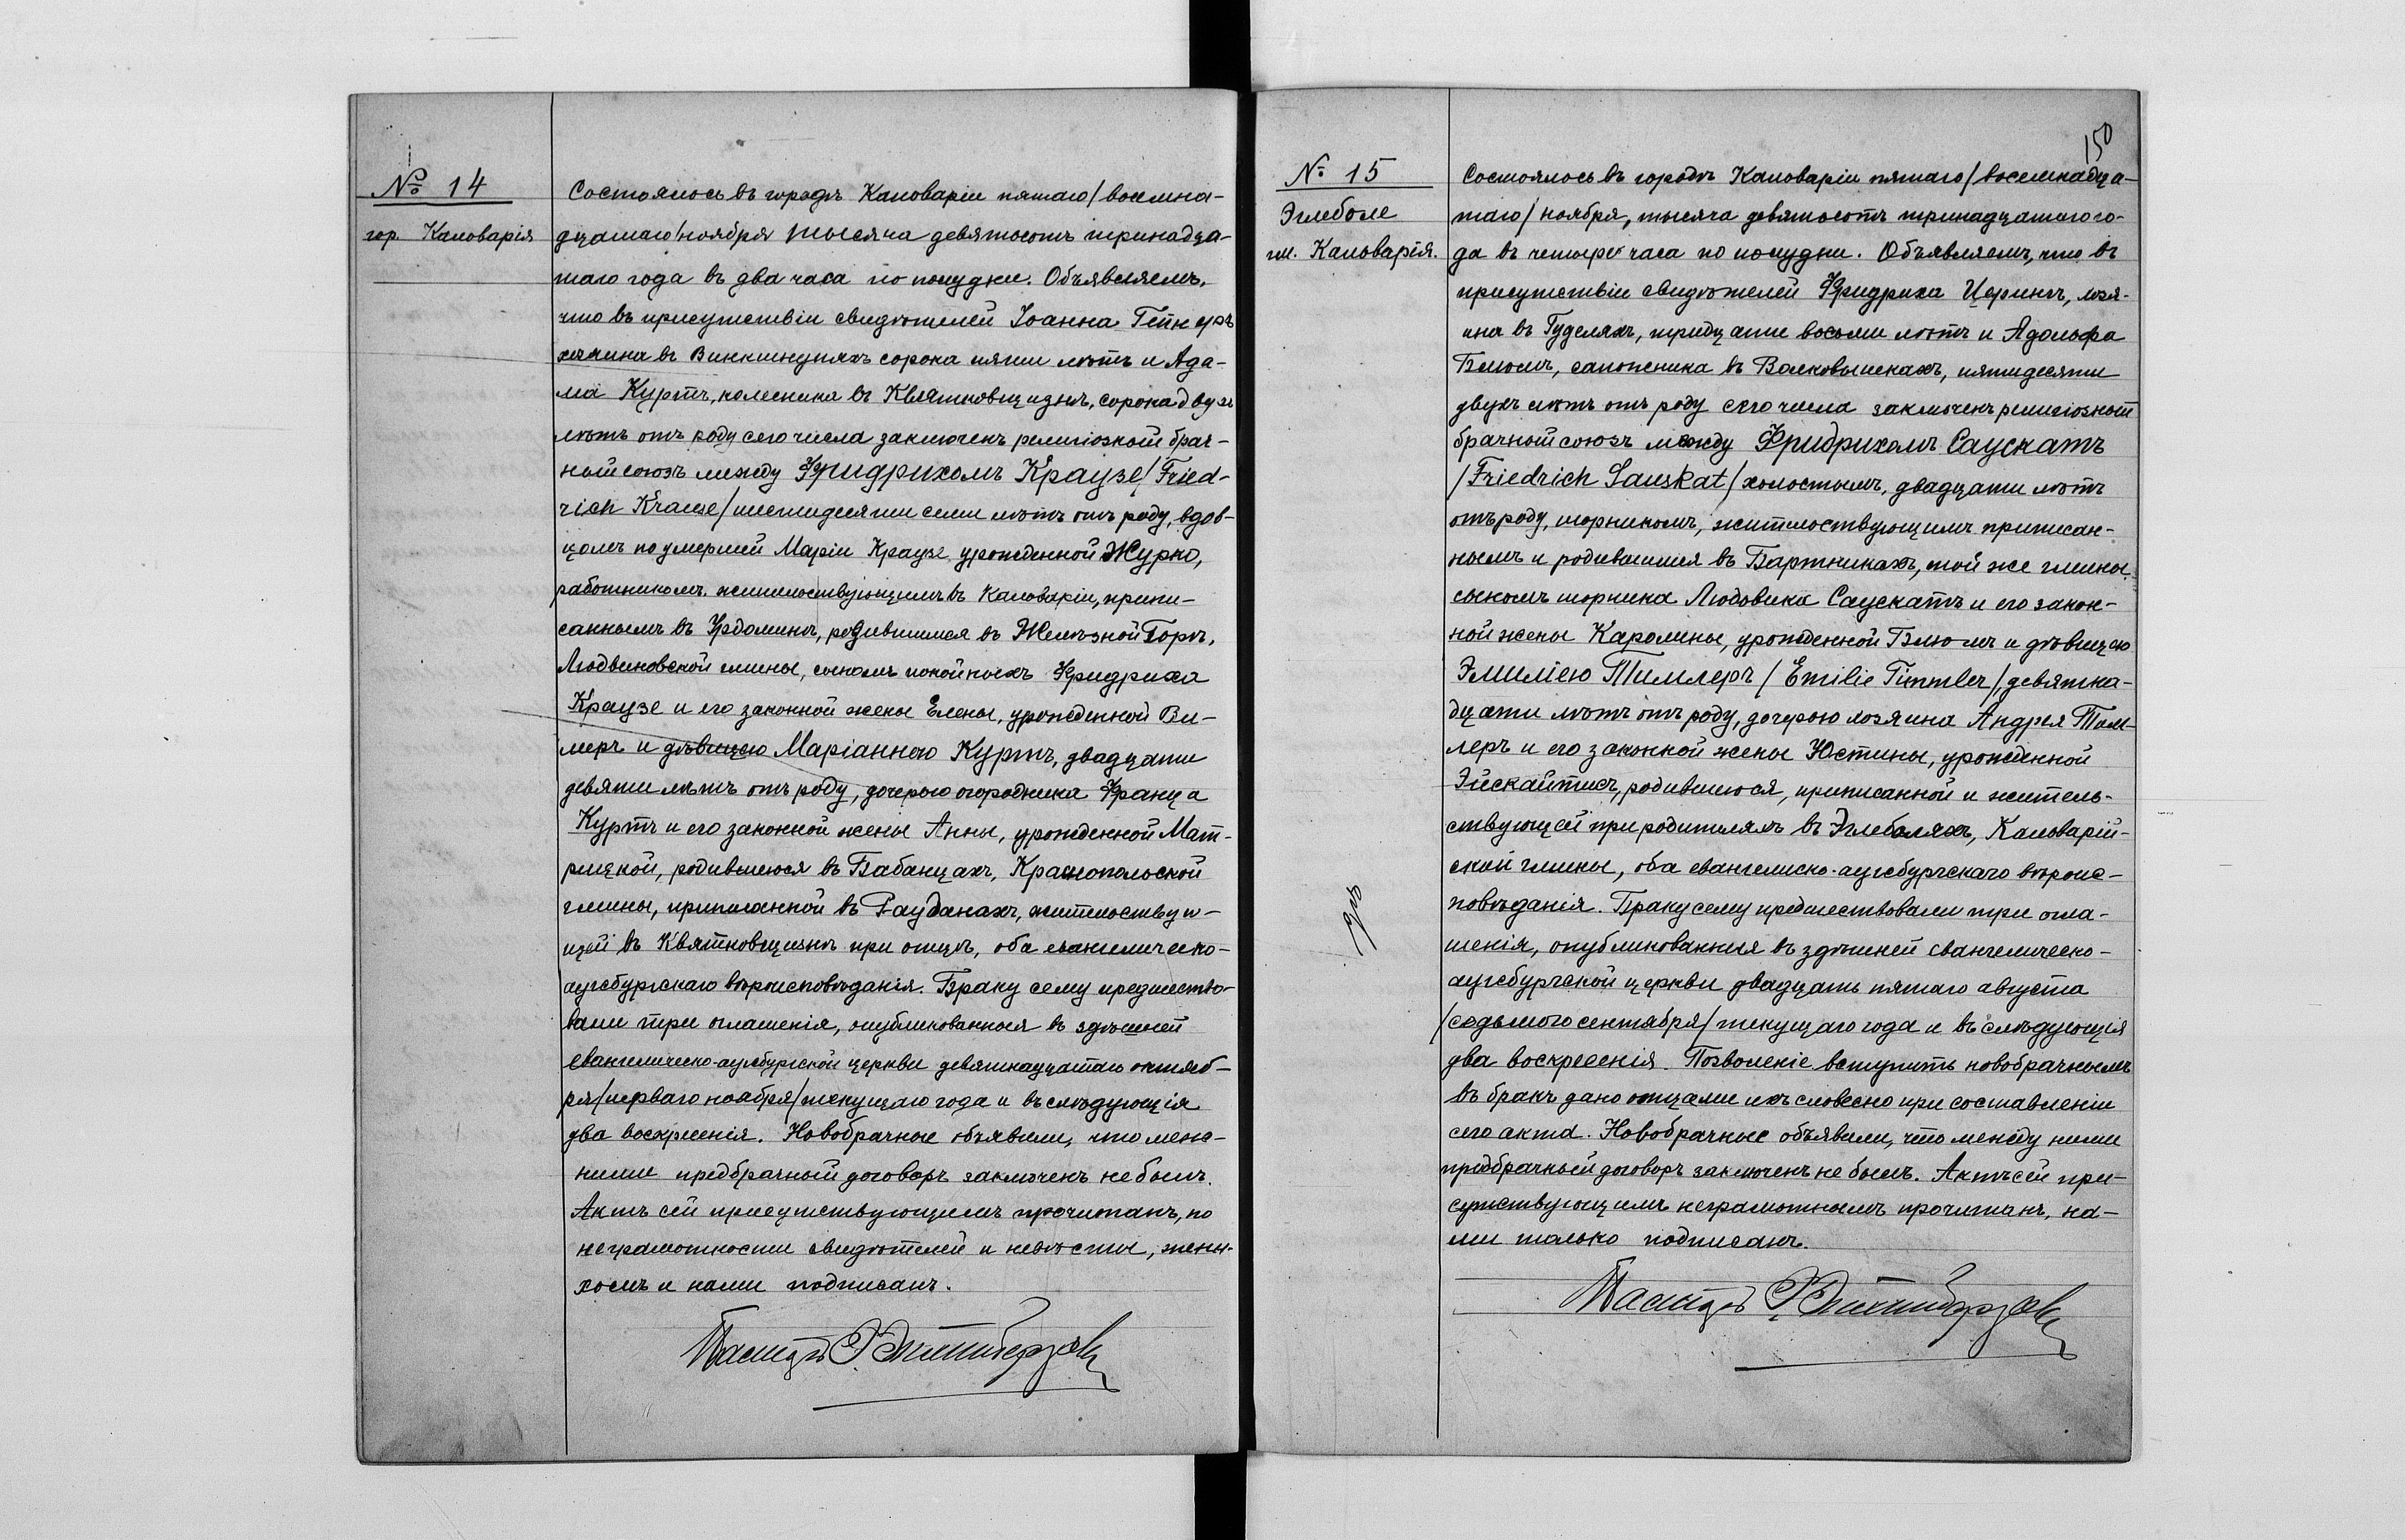 № 14
гор. Кальварія
Состоялось въ городѣ Кальваріи пятаго/восемна-
дцатаго/ноября тысяча девятьсотъ тринадца-
таго года въ два часа по полудни. Объявляемъ,
что въ присутствіи свидѣтелей Іоанна Гейнеръ
хозяина въ Винкшнупяхъ сорока пяти лѣтъ и Ада-
ма Куртъ, колесника въ Квятковщизнѣ, сорока двухъ
лѣтъ отъ роду сего числа заключенъ религіозный брач-
ный союзъ между Фридрихомъ Краузе/Fried-
rich Krause/шестидесяти семи лѣтъ отъ роду, вдов-
цомъ по умершей Маріи Краузе урожденной Журко,
работникомъ жительствующимъ въ Кальваріи, припи-
саннымъ въ Урдоминѣ, родившимся въ Желѣзной Горѣ,
Людвиновской гмины, сыномъ покойныхъ Фридриха
Краузе и его законной жены Елены, урожденной Ви-
меръ и дѣвицею Маріанною Куртъ, двадцати
девяти лѣтъ отъ роду, дочерью огородника Франца
Куртъ и его законной жены Анны, урожденной Мат-
рицкой, родившеюся въ Бабанцахъ, Краснопольской
гмины, приписанной въ Рауданахъ, жительствую-
щей въ Квятковщизнѣ при отцѣ, оба евангелическо-
аугсбургскаго вѣроисповѣданія. Браку сему предшество-
вали три оглашенія, опубликованныя въ здѣшней
евангелическо-аугсбургской церкви девятнадцатаго октяб-
ря/перваго ноября/текущаго года и въ слѣдующія
два воскресенія. Новобрачные объявили, что меж-
ними предбрачный договоръ заключенъ не былъ.
Актъ сей присутствующимъ прочитанъ, по
неграмотности свидѣтелей и невѣсты, жени-
хомъ и нами подписанъ.
Пасторъ
150
№ 15
Эглеболе
гм. Кальварія.
Состоялось въ городѣ Кальваріи пятаго/восемнадца-
таго/ноября, тысяча девятьсотъ тринадцатаго го-
да въ четыре часа по полудни. Объявляемъ, что въ
присутствіи свидѣтелей Фридриха Церинъ, хозя-
ина въ Гуделяхъ, тридцати восьми лѣтъ и Адольфа
Блюмъ, сапожника въ Волковышкахъ, пятидесяти
двухъ лѣтъ отъ роду сего числа заключенъ религіозный
брачный союзъ между Фридрихомъ Саускатъ
/Friedrich Sauskat/холостымъ, двадцати лѣтъ
отъ роду, шорникомъ, жительствующимъ приписан-
нымъ и родившимся въ Бартникахъ, той же гмины,
сыномъ шорника Людовика Саускатъ и его закон-
ной жены Каролины, урожденной Блюмъ и дѣвицею
Эмиліею Тимлеръ/Emilie Timmler/, девятна-
дцати лѣтъ отъ роду, дочерью хозяина Андрея Тим-
леръ и его законной жены Юстины, урожденной
Эйскайтисъ, родившеюся, приписанной и житель-
ствующей при родителяхъ въ Эглеболяхъ, Кальварій-
ской гмины, оба евангелиско-аугсбургскаго вѣроис-
повѣданія. Браку сему предшествовали три огла-
шенія, опубликованныя въ здѣшней евангелическо-
аугсбургской церкви двадцать пятаго августа
/седьмого сентября/текущаго года и въ слѣдующія
два воскресенія. Позволеніе вступить новобрачнымъ
въ бракъ дано отцами ихъ словесно при составленіи
сего акта. Новобрачные объявили, что между ними
предбрачный договоръ заключенъ не былъ. Актъ сей при-
сутствующимъ неграмотнымъ прочитанъ, на-
ми только подписанъ.
Пасторъ